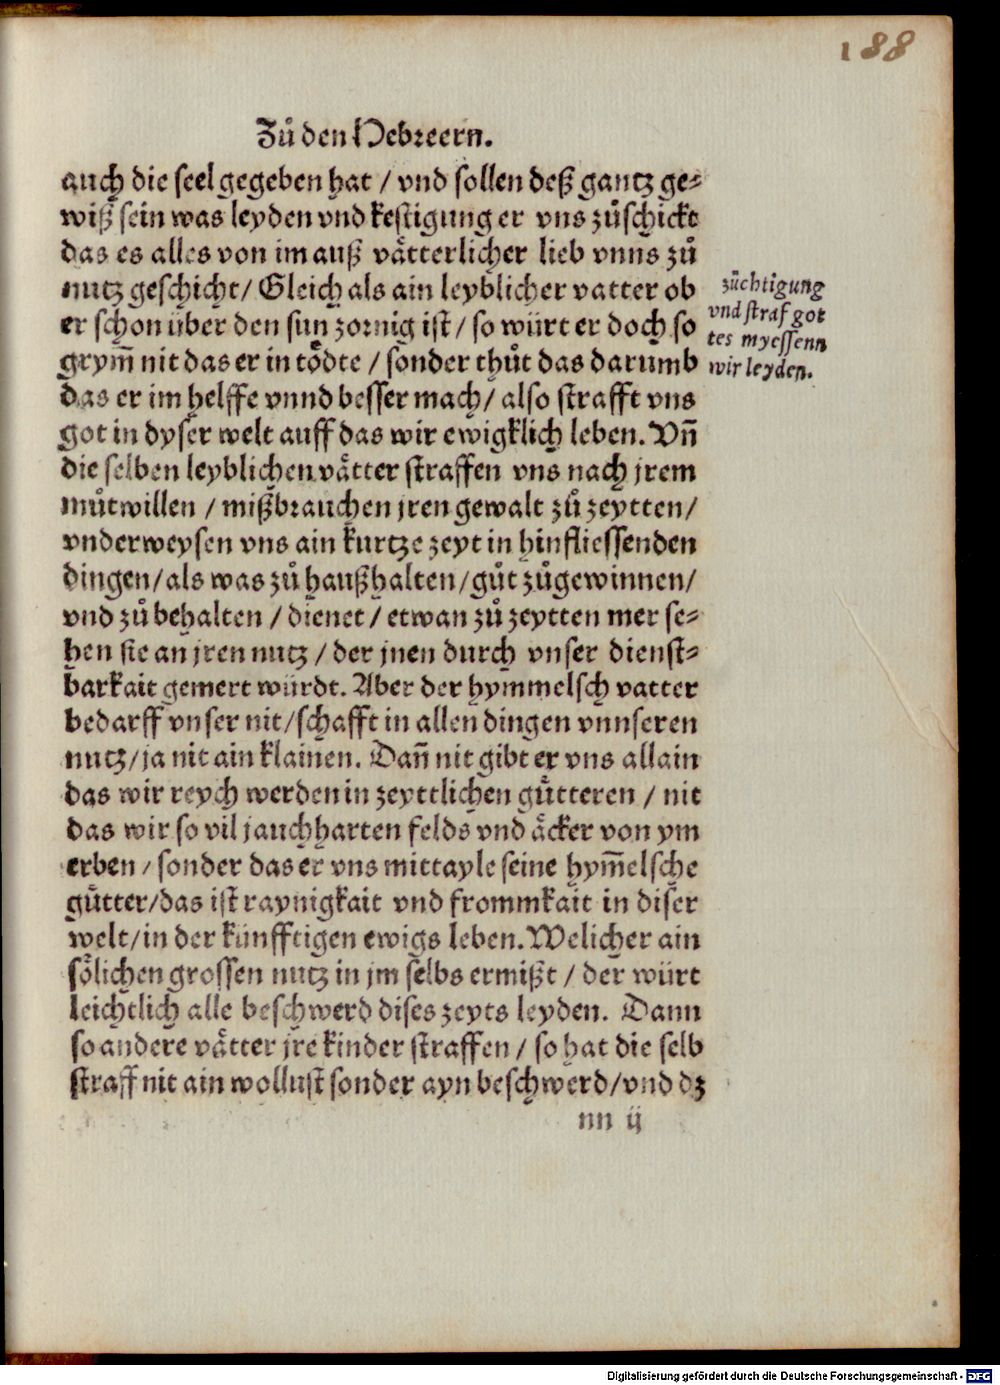 188
Zů den Hebreern.
auch die seel gegeben hat / vnd sollen deß gantz ge⸗
wiß sein was leyden vnd kestigung er vns zůschickt
das es alles von im auß vaͤtterlicher lieb vnns zů
nutz geschicht/ Gleich als ain leyblicher vatter ob
er schon über den sun zornig ist / so würt er doch so
grym̄ nit das er in toͤdte / sonder thůt das darumb
das er im helffe vnnd besser mach/ also strafft vns
got in dyser welt auff das wir ewigklich leben. Vn̄
die selben leyblichen vaͤtter straffen vns nach jrem
můtwillen / mißbrauchen jren gewalt zů zeytten/
vnderweysen vns ain kurtze zeyt in hinfliessenden
dingen/als was zů haußhalten/gůt zůgewinnen/
vnd zů behalten / dienet / etwan zů zeytten mer se⸗
hen sie an jren nutz / der jnen durch vnser dienst⸗
barkait gemert würdt. Aber der hymmelsch vatter
bedarff vnser nit/schafft in allen dingen vnnseren
nutz/ja nit ain klainen. Dan̄ nit gibt er vns allain
das wir reych werden in zeyttlichen guͤtteren / nit
das wir so vil jauchharten felds vnd aͤcker von ym
erben / sonder das er vns mittayle seine hym̄elsche
guͤtter/das ist raynigkait vnd frommkait in diser
welt/in der künfftigen ewigs leben. Welicher ain
soͤlichen grossen nutz in jm selbs ermißt / der würt
leichtlich alle beschwerd dises zeyts leyden. Dann
so andere vaͤtter jre kinder straffen / so hat die selb
straff nit ain wollust sonder ayn beschwerd/vnd dz
nn ij
züchtigung
vnd straf got
tes myessenn
wir leyden.
Digitalisierung gefördert durch die Deutsche Forschungsgemeinschaft - DFG